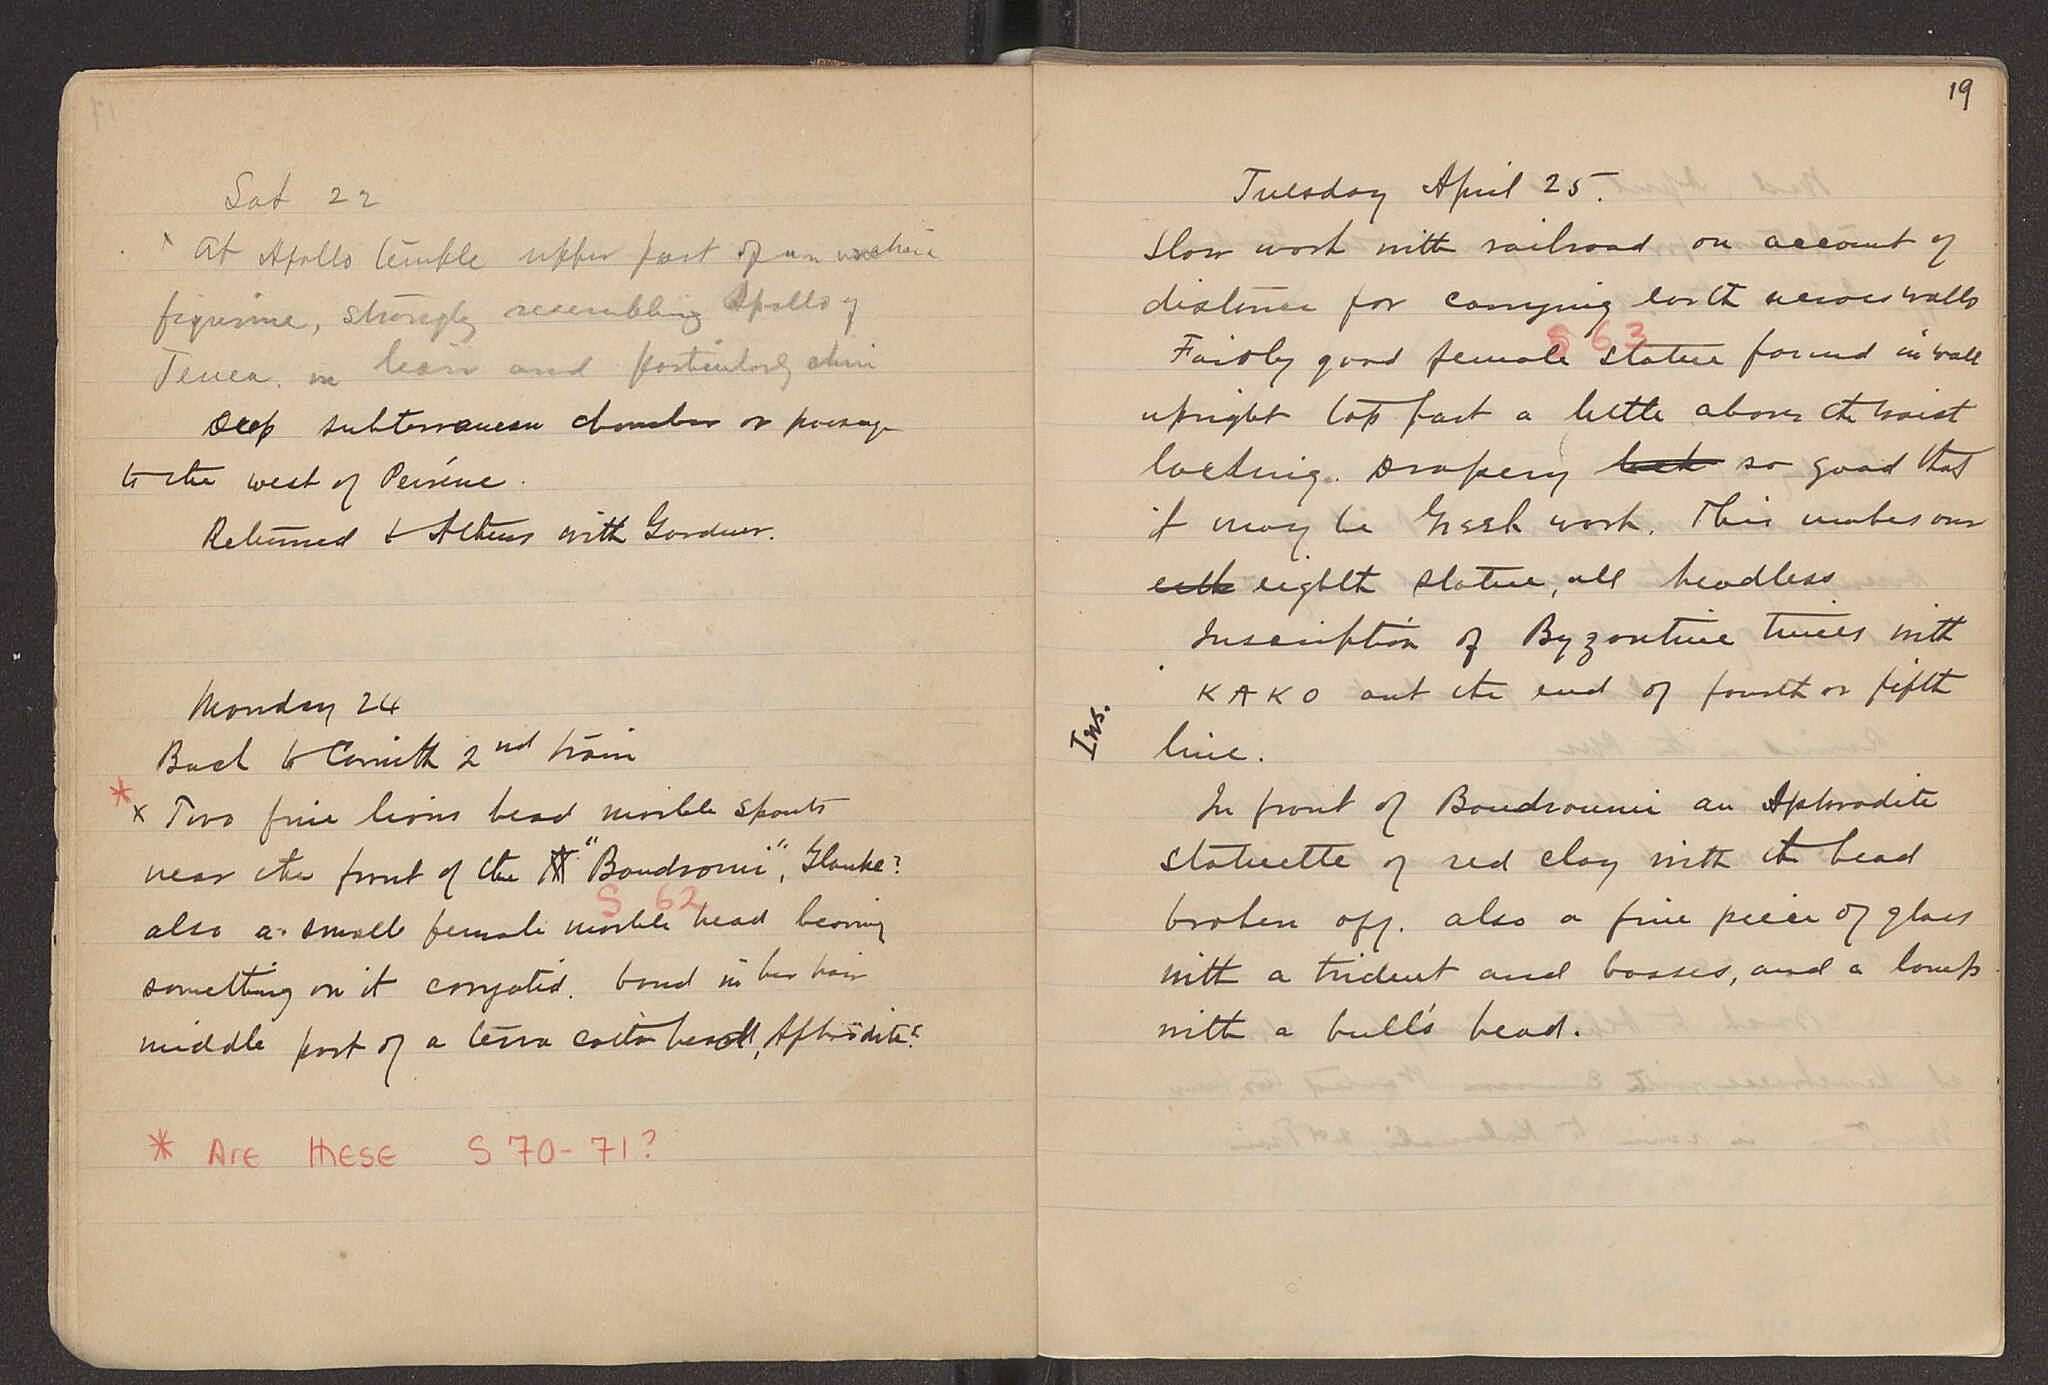 Sat 22
x At Apollo temple upper part of an archaic
figurine, strongly resembling Apollo of
Tenea. in hair and particularly chin
Deep subterranean chamber or passage
to the west of Peirene.
Returned to Athens with Gardner.
Monday 24
Back to Corinth 2nd train
* x Two fine lions head marble spouts
near the front of the "Boudroumi", Glauke?
S 62
also a small female marble head bearing
something on it caryatid. band in her hair
middle part of a terra cotta head, Aphrodite?
* Are these S 70-71?
19
Tuesday April 25.
Slow work with railroad on account of
distance for carrying earth across walls
S 63
Fairly good female statue found in wall
upright top part a little above the waist
lacking. Drapery so good that
it may be Greek work. This makes our
eighth statue, all headless
Inscription of Byzantine times with
KAKO at the end of fourth or fifth
Ins.
line.
In front of Boudroumi an Aphrodite
statuette of red clay with the head
broken off. also a fine piece of glass
with a trident and bosses, and a lamp
with a bull's head.